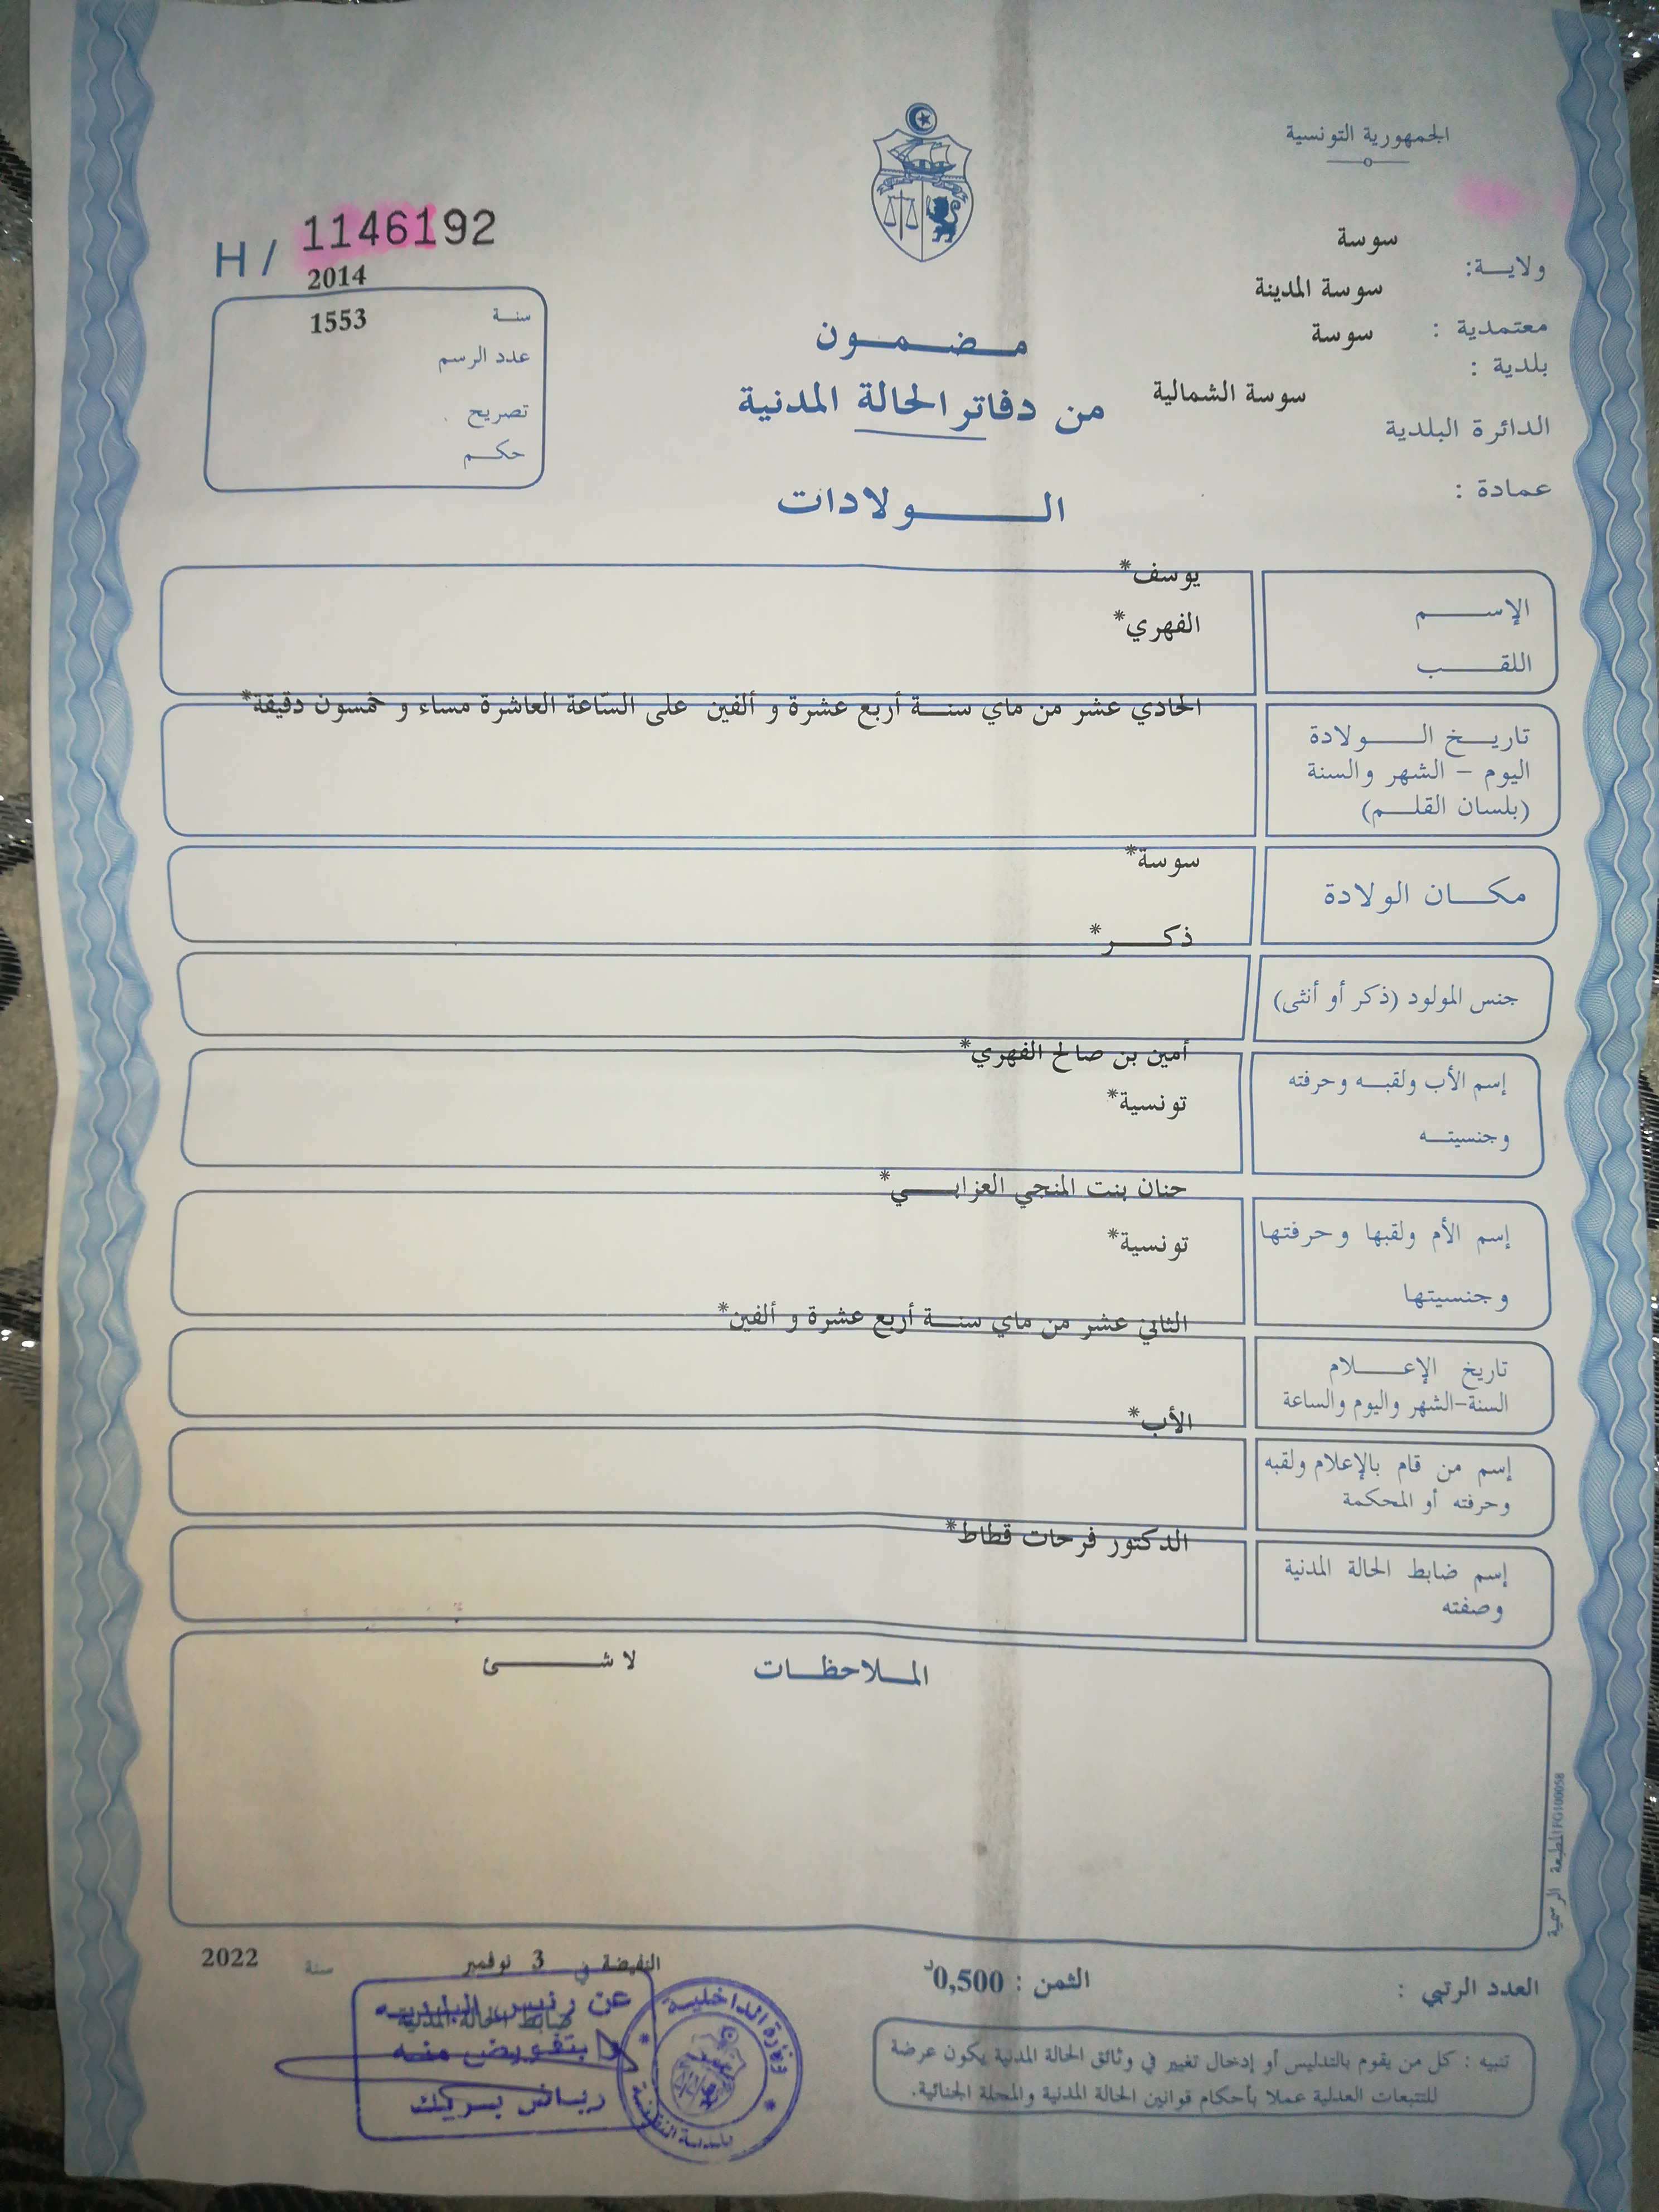 الجمهورية التونسية
سوسة
ولايـــة:
سوسة المدينة
معتمدية :
سوسة
بلدية :
سوسة الشمالية
الدائرة البلدية
عمادة :
H / 1146192
2014
سنـة
1553
عدد الرسم
تصريح
حكـم
مـضـمـون
من دفاتر الحالة المدنية
الـولادات
يوسف*
الإســـم
الفهري*
اللقـــب
الحادي عشر من ماي سنــة أربع عشرة و ألفين على السّاعة العاشرة مساء و خمسون دقيقة*
تاريـخ الـــولادة
اليوم - الشهر والسنة
(بلسان القلـم)
سوسة*
مكــان الولادة
ذكـــر*
جنس المولود (ذكر أو أنثى)
أمين بن صالح الفهري*
إسم الأب ولقبـه وحرفته
تونسية*
وجنسيتـه
حنان بنت المنجي العزابـــي*
إسم الأم ولقبها وحرفتها
تونسية*
وجنسيتها
الثاني عشر من ماي سنــة أربع عشرة و ألفين*
تاريخ الإعـــلام
السنة-الشهر واليوم والساعة
الأب*
إسم من قام بالإعلام ولقبه
وحرفته أو المحكمة
الدكتور فرحات قطاط*
إسم ضابط الحالة المدنية
وصفته
الملاحظـات
لا شـــئ
المطبعة الرسمية FG100058
النفيضة في 3 نوفمبر سنة 2022
ضابط الحالة المدنية
عن رئيس البلدية
و بتفويض منه
رياض بريك
وزارة الداخلية
بلدية النفيضة
العدد الرتبي :
الثمن : 0,500د
تنبيه : كل من يقوم بالتدليس أو إدخال تغيير في وثائق الحالة المدنية يكون عرضة
للتتبعات العدلية عملا بأحكام قوانين الحالة المدنية والمجلة الجنائية.